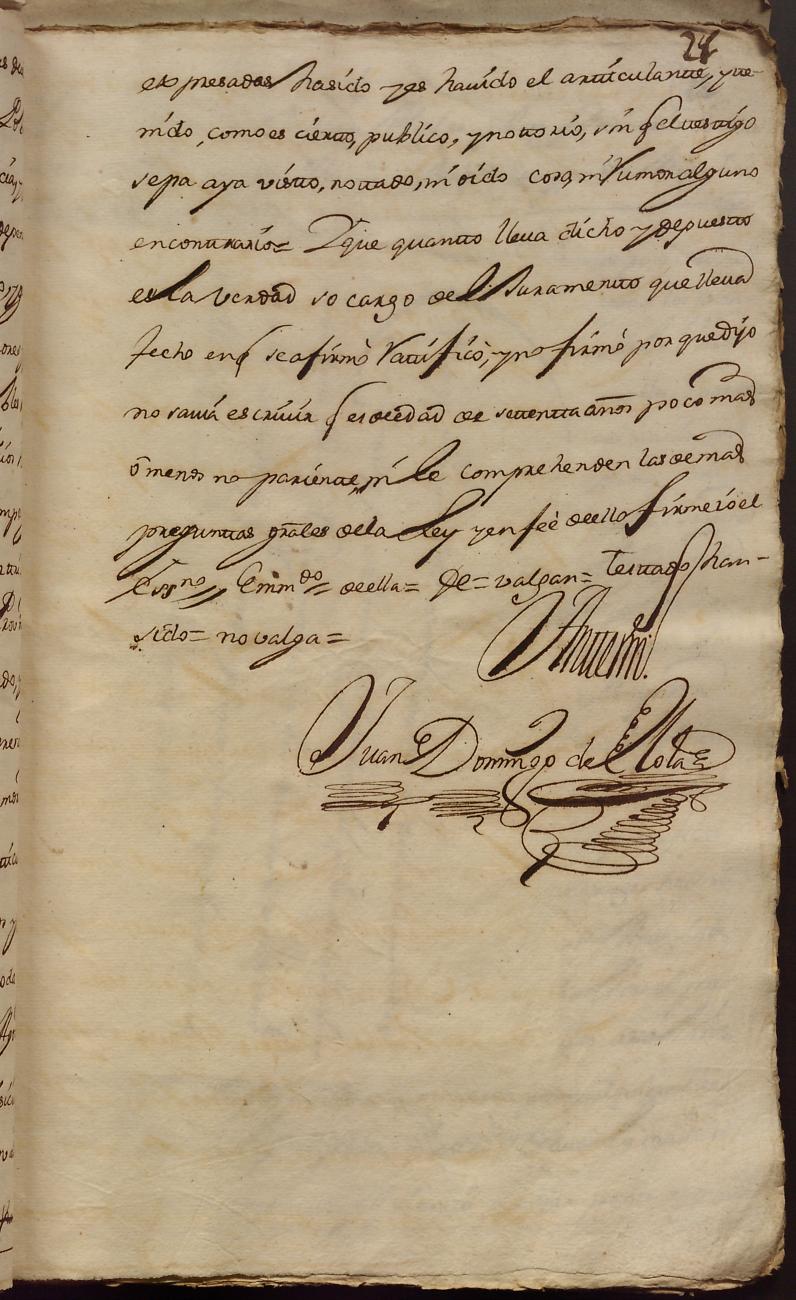 24
expresadas hasido yes havido el articulante, yte-
nido, como es cierto, publico, y nottorio, sin q el testigo
sepa aya visto, nottado, ni oido cosa, ni Rumor alguno
encontrario= Yque quantto lleva dicho y depuestto
es la verdad so cargo de el Juramento que lleva
fecho en q se afirmó Ratificó, y no firmó por que dijo
no savia escrivir q es de edad de settentta años poco mas
ó menos no pariente, ni le comprehenden las demas
preguntas grâles de la Ley yen feé de ello firmé io el
Essno,, Emmdo= de ella= De= valgan= Testtado han-
sido= no valga=
Antemi.
Juan Domingo de